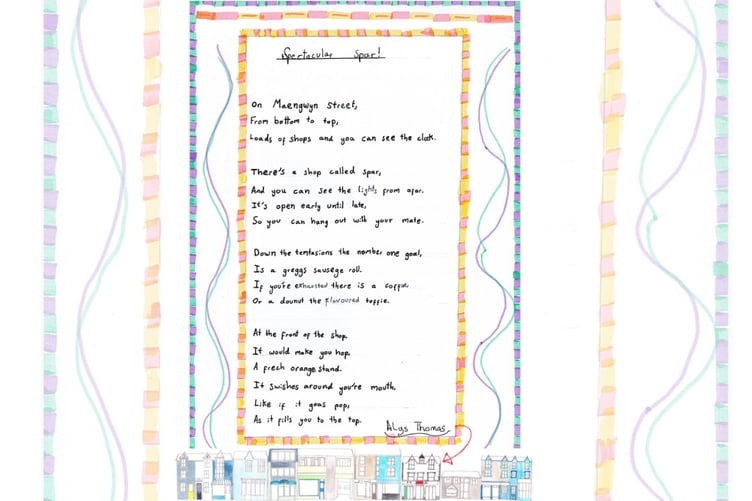 Spectacular Spar!
On Maengwyn Street,
From bottom to top,
Loads of shops and you can see the clock.
There's a shop called spar,
And you can see the lights from afar.
It's open early until late,
So you can hang out with your mate.
Down the temtasions the number one goal,
Is a greggs sausege roll.
If you're exhausted there is a coffie,
Or a dounut the flavoured toffie.
At the front of the shop,
It would make you hop,
A fresh orange stand.
It swishes around you're mouth,
Like if it goas pop,
As it fills you to the top.
Alys Thomas